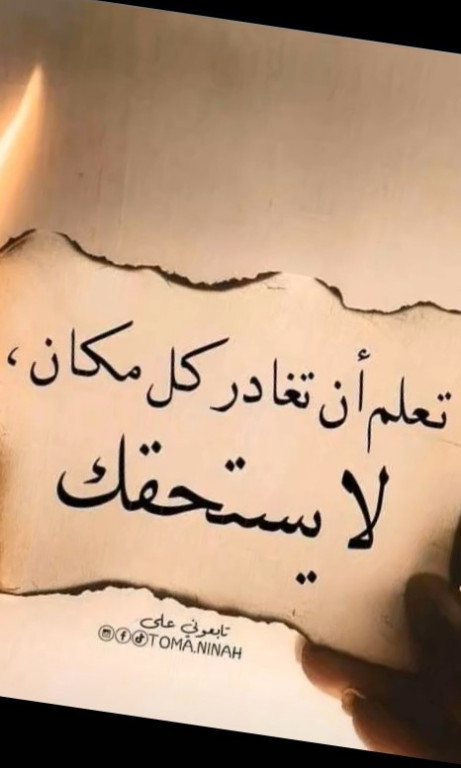 تعلم أن تغادر كل مكان ،
لا يستحقك
تابعوني على
TOMA.NINAH